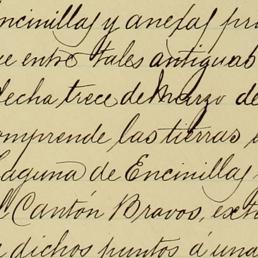 Encinillas y anexas pr
ue entre tales antiguas
fecha trece de Marzo de
comprende las tierras
Laguna de Encinillas
Cantón Bravos, ext
dichos puntos á una